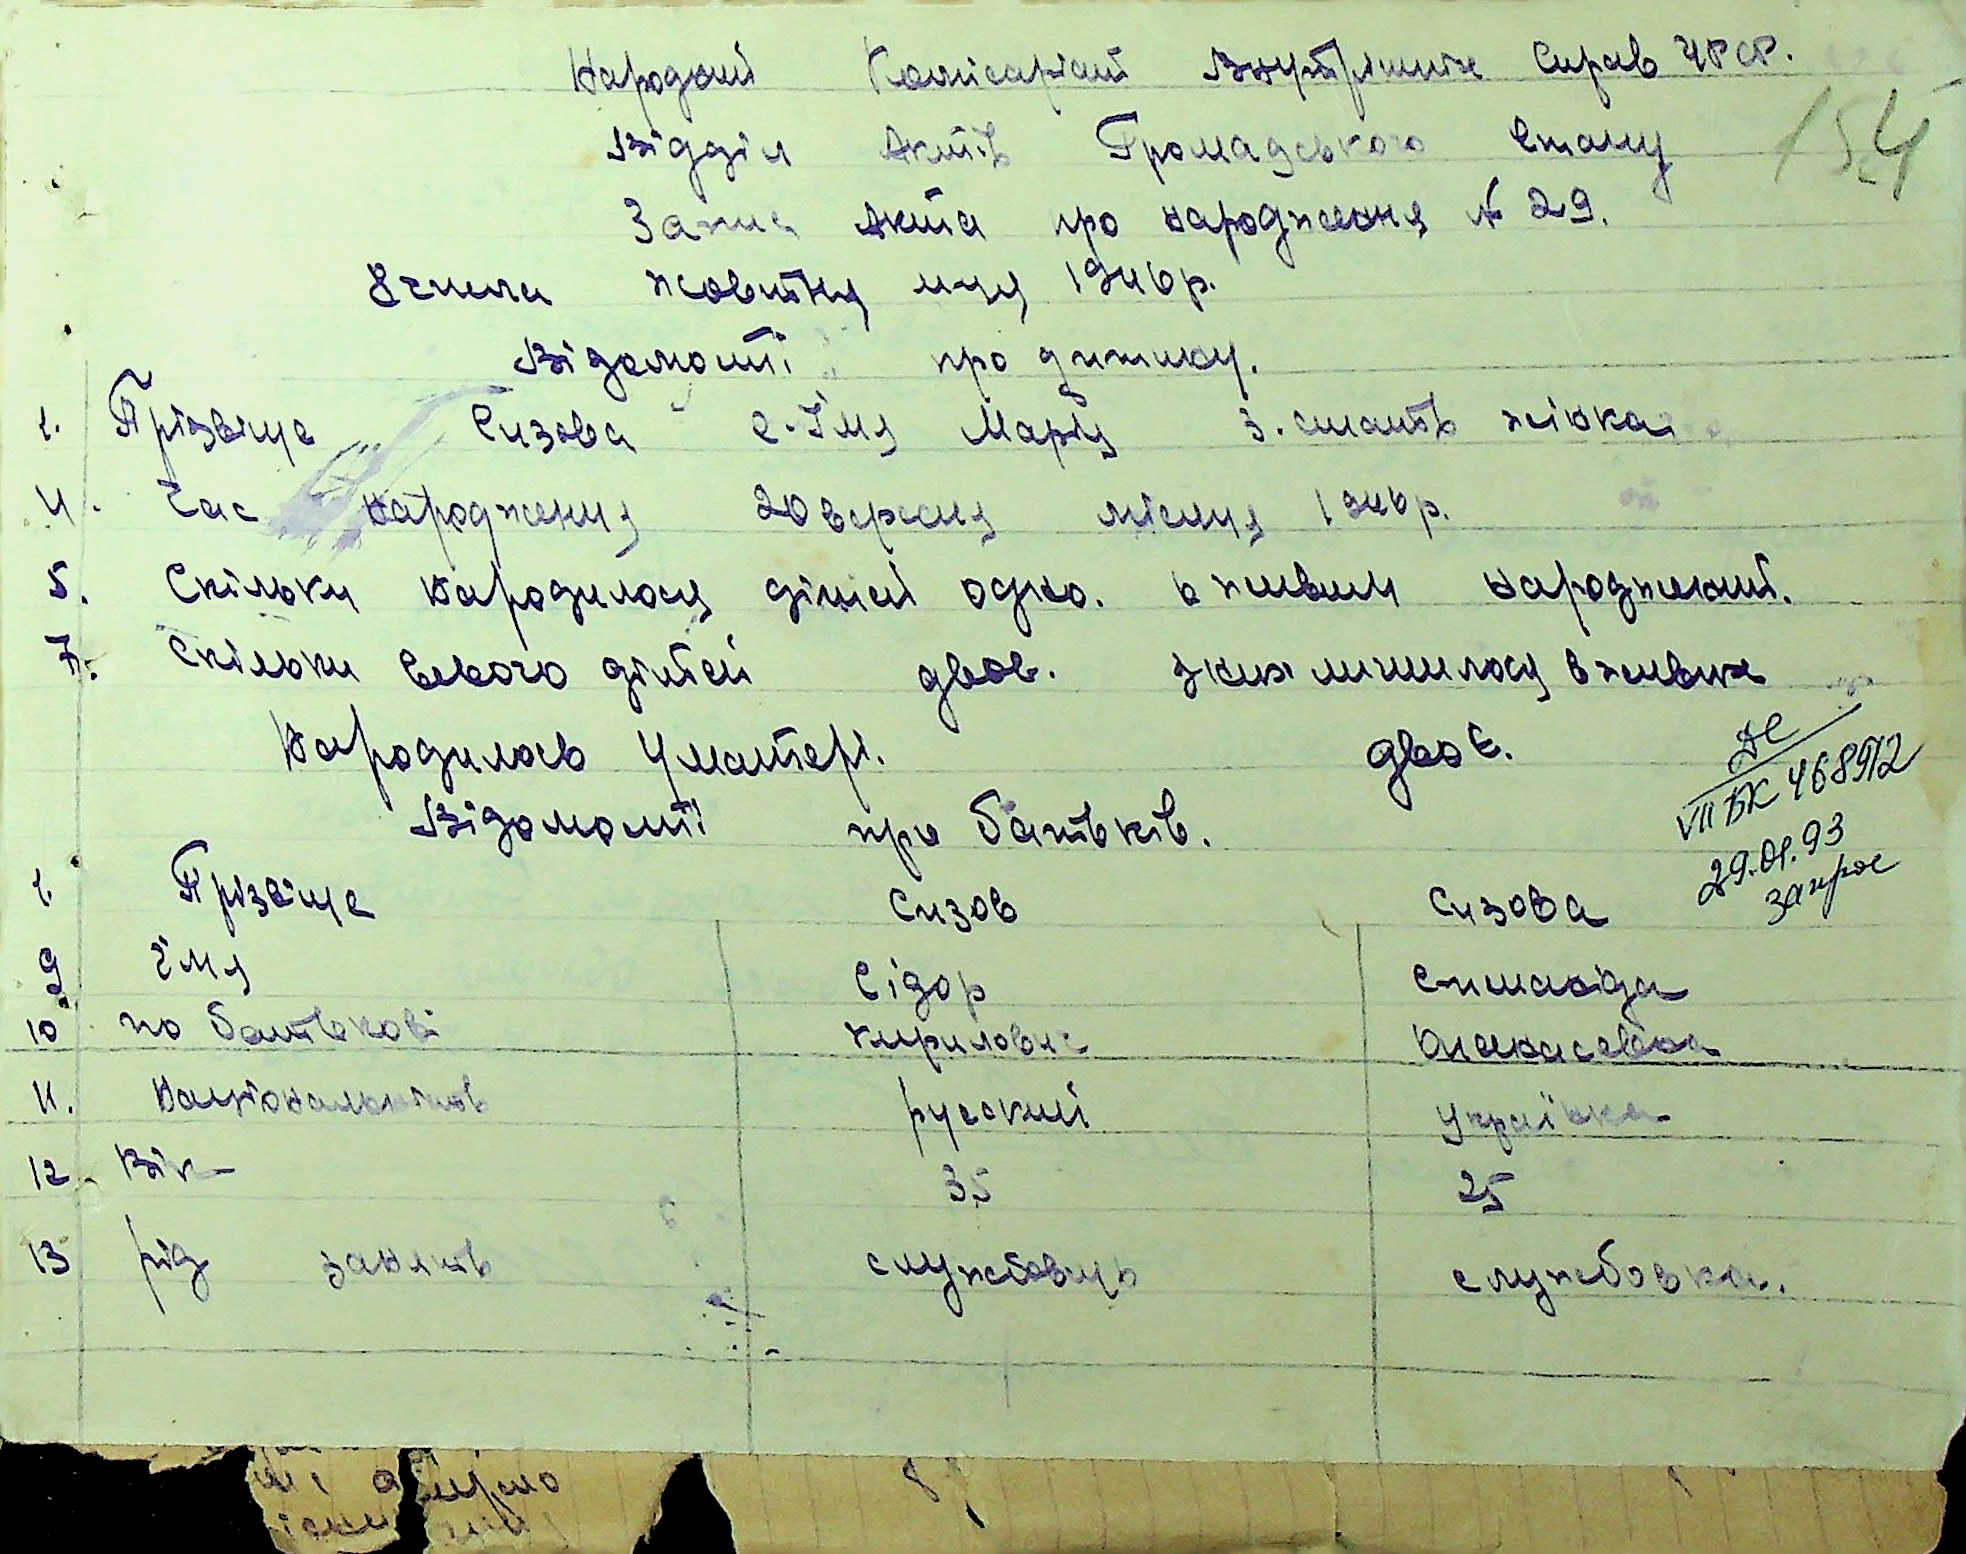 Народний Комісаріят Внутрішніх Справ УРСР.
154
Відділ Актів Громадського Стану
Запис Акта про народження № 29.
8 числа жовтня м-ця 1946 р.
Відомості про дитину.
1. Прізвіще Сизова 2. Імя Марія 3. стать жінка
4. Час народженя 20 вересня місяця 1946 р.
5. Скільки народилося дітей одно. 6 живим народжений.
7. Скільки всього дітей двое. зких лишилося в живих
Народилось у матері. двоє.
АС
VII БК 468972
29.01.93
запрос
Відомості про батьків.
Прізвіще Сизов Сизова
9 Імя Сідор Степанида
10 по батькові Кирилович
11. Національність русский Українка
12 Вік 35 25
13 рід занять службовець службовка.